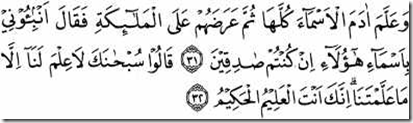 وَعَلَّمَ اٰدَمَ الْاَسْمَاۤءَ كُلَّهَا ثُمَّ عَرَضَهُمْ عَلَى الْمَلٰۤىِٕكَةِ فَقَالَ اَنْۢبِـُٔوْنِيْ
بِاَسْمَاۤءِ هٰٓؤُلَاۤءِ اِنْ كُنْتُمْ صٰدِقِيْنَ ٣١ قَالُوْا سُبْحٰنَكَ لَا عِلْمَ لَنَآ اِلَّا
مَا عَلَّمْتَنَا ۗاِنَّكَ اَنْتَ الْعَلِيْمُ الْحَكِيْمُ ٣٢